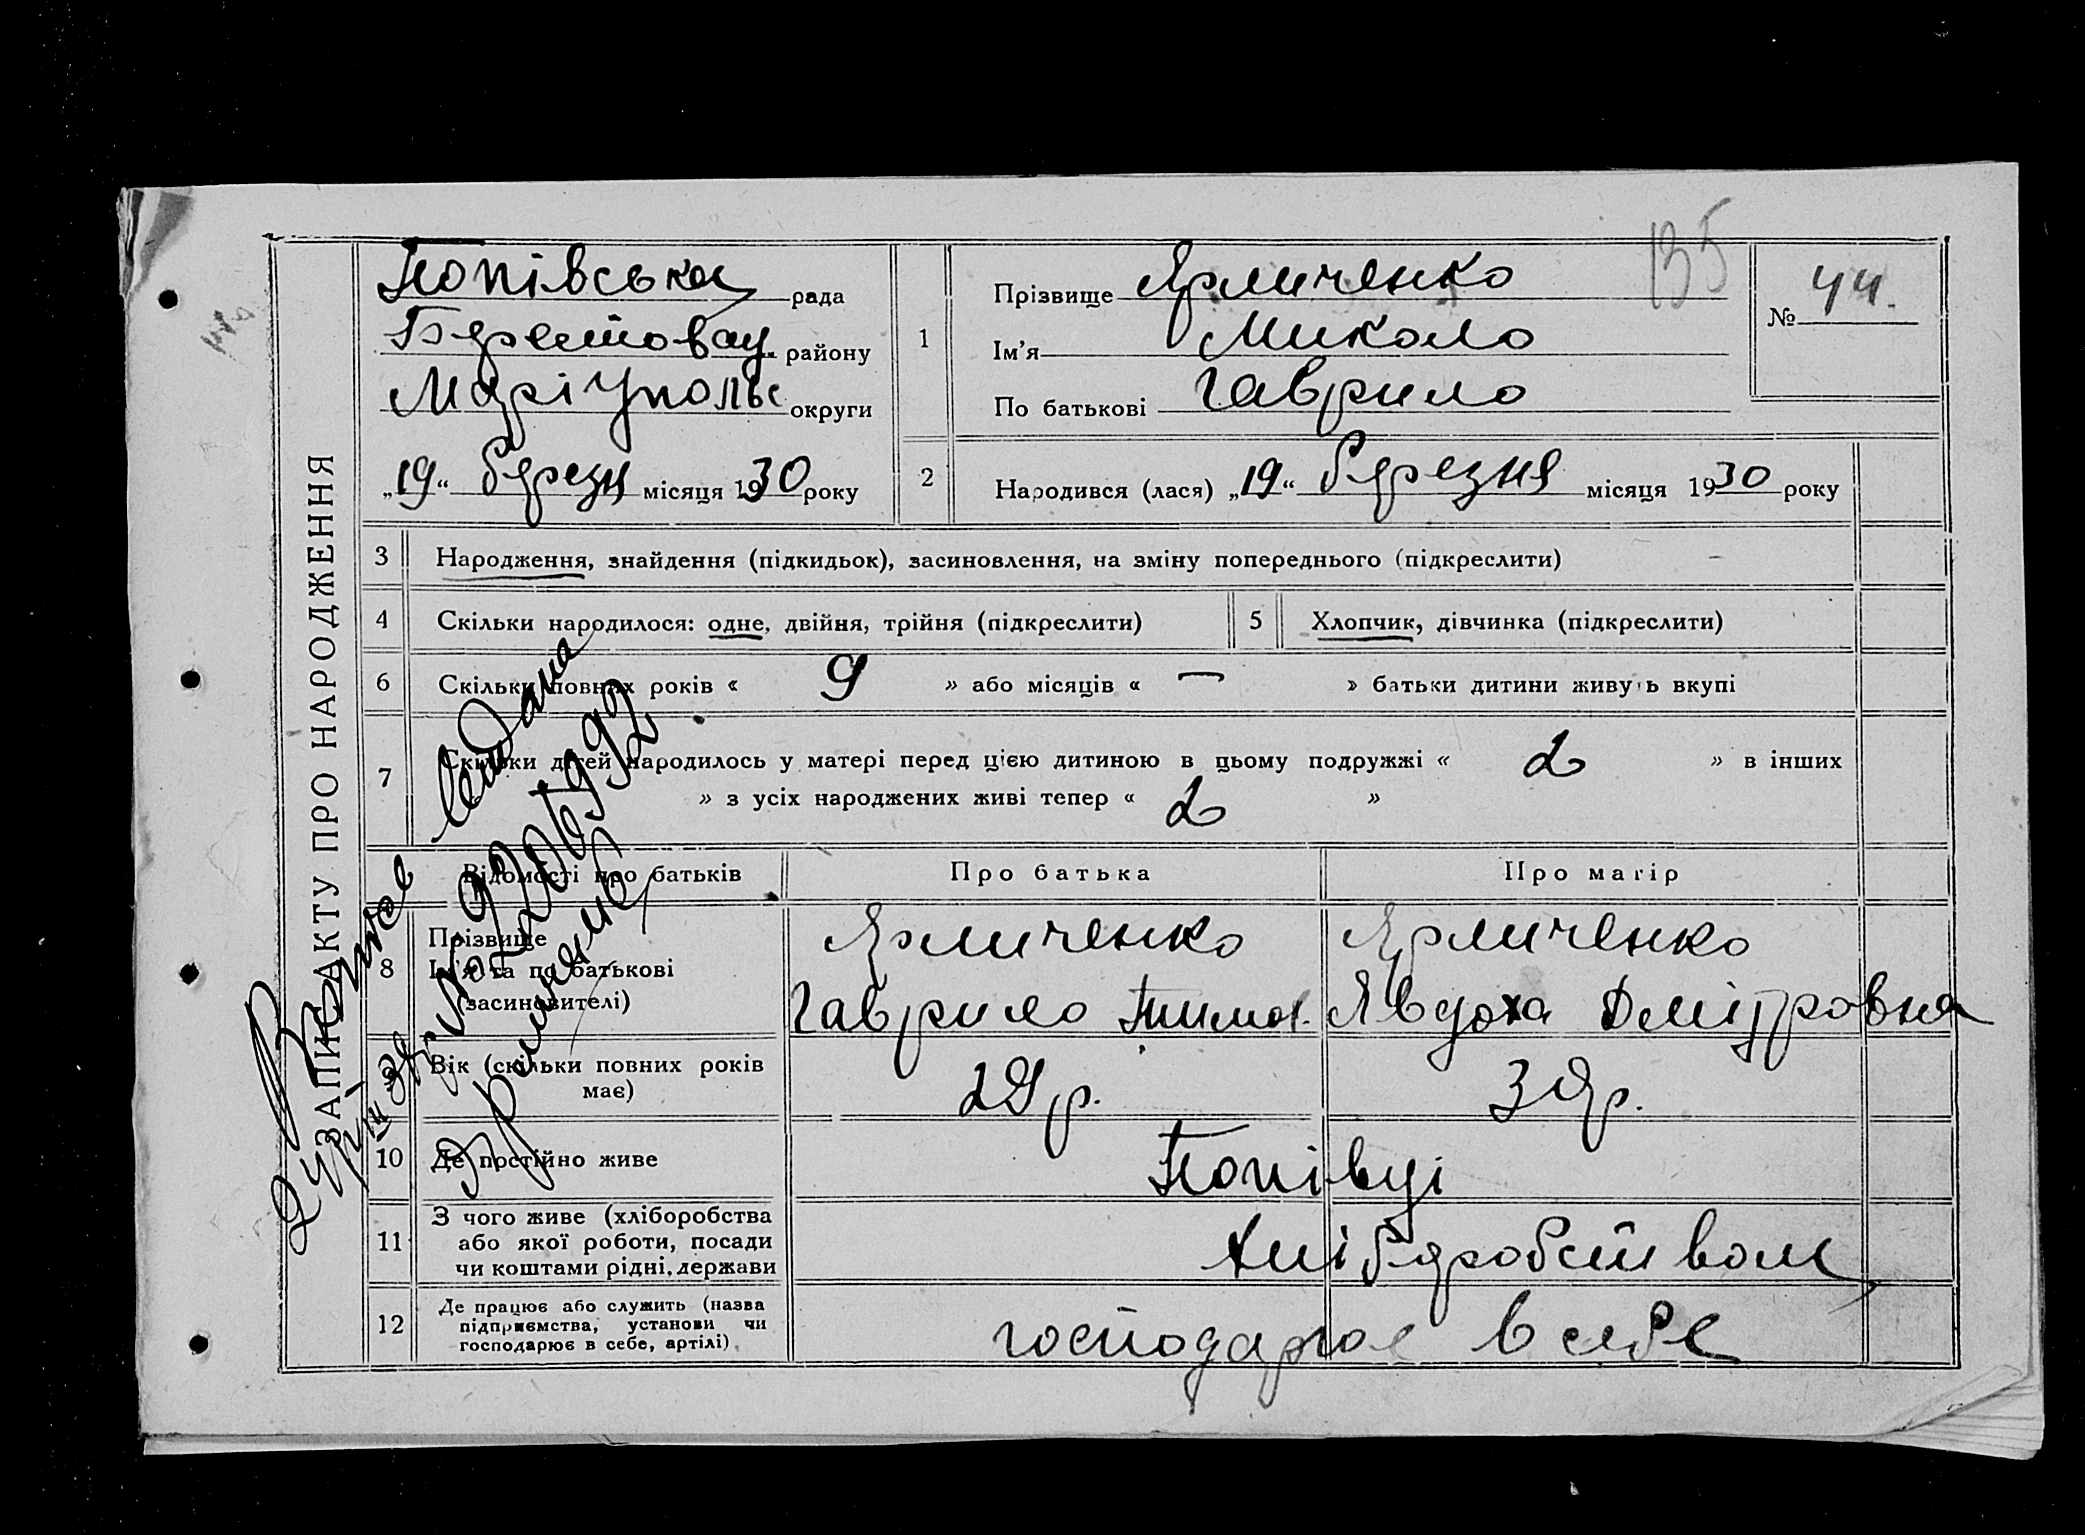 ЗАПИС АКТУ ПРО НАРОДЖЕННЯ
Попівська рада
Берестовац. району
Маріупольс округи
„19“ березн місяця 1930 року
135
1 Прізвище Ярмиченко
Ім'я Микола
По батькові Гаврило
№ 44.
2 Народився (лася) „19“ березня місяця 1930 року
3 Народження, знайдення (підкидьок), засиновлення, на зміну попереднього (підкреслити)
4 Скільки народилося: одне, двійня, трійня (підкреслити) 5 Хлопчик, дівчинка (підкреслити)
6 Скільки повних років « 9 » або місяців « — » батьки дитини живуть вкупі
7 Скільки дітей народилось у матері перед цією дитиною в цьому подружжі « 2 » в інших
» з усіх народжених живі тепер « 2 »
Відомості про батьків Про батька Про матір
8 Прізвище Ярмиченко Ярмиченко
Ім'я та по батькові Гаврило Тимоф. Явдоха Дмітровна
(засиновителі)
Вік (скільки повних років має) 29 р. 30 р.
10 Де постійно живе Попівці
11 З чого живе (хліборобства
або якої роботи, посади
чи коштами рідні, держави Хліберобством
12 Де працює або служить (назва
підприємства, установи чи
господарює в себе, артілі) господарює в себе